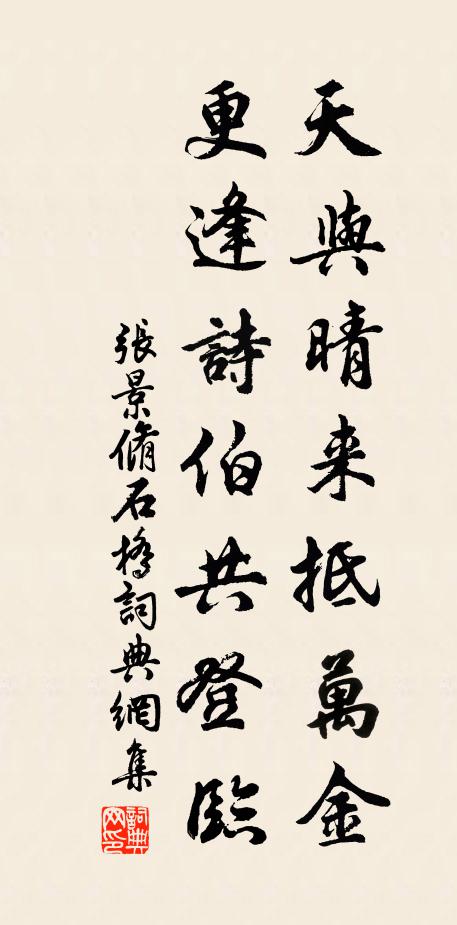 天與晴来抵萬金
更逢詩伯共登臨
張景脩石橋詞典網集
詞典網印